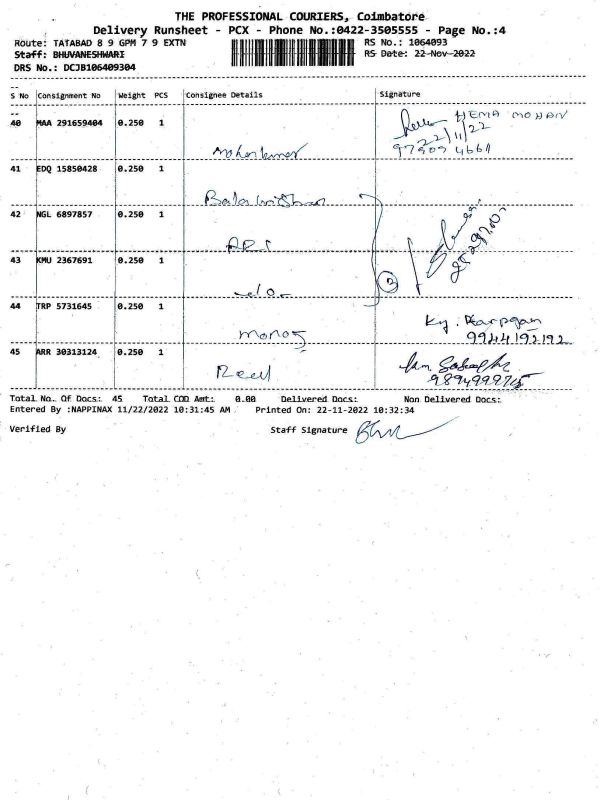 THE PROFESSIONAL COURIERS, Coimbatore
Delivery Runsheet - PCX - Phone No.:0422-3505555 - Page No.:4
Route: TATABAD 8 9 GPM 7 9 EXTN RS No.: 1064093
Staff: BHUVANESHWARI RS Date: 22-Nov-2022
DRS No.: DCJB106409304
S No Consignment No Weight PCS Consignee Details Signature
40 MAA 291659404 0.250 1 HEMA MOHAN
22/11/22
41 EDQ 15850428 0.250 1
42 NGL 6897857 0.250 1
43 KMU 2367691 0.250 1
44 TRP 5731645 0.250 1 manoj
9944192192
45 ARR 30313124 0.250 1
Total No. Of Docs: 45 Total COD Amt: 0.00 Delivered Docs: Non Delivered Docs:
Entered By :NAPPINAX 11/22/2022 10:31:45 AM Printed On: 22-11-2022 10:32:34
Verified By Staff Signature